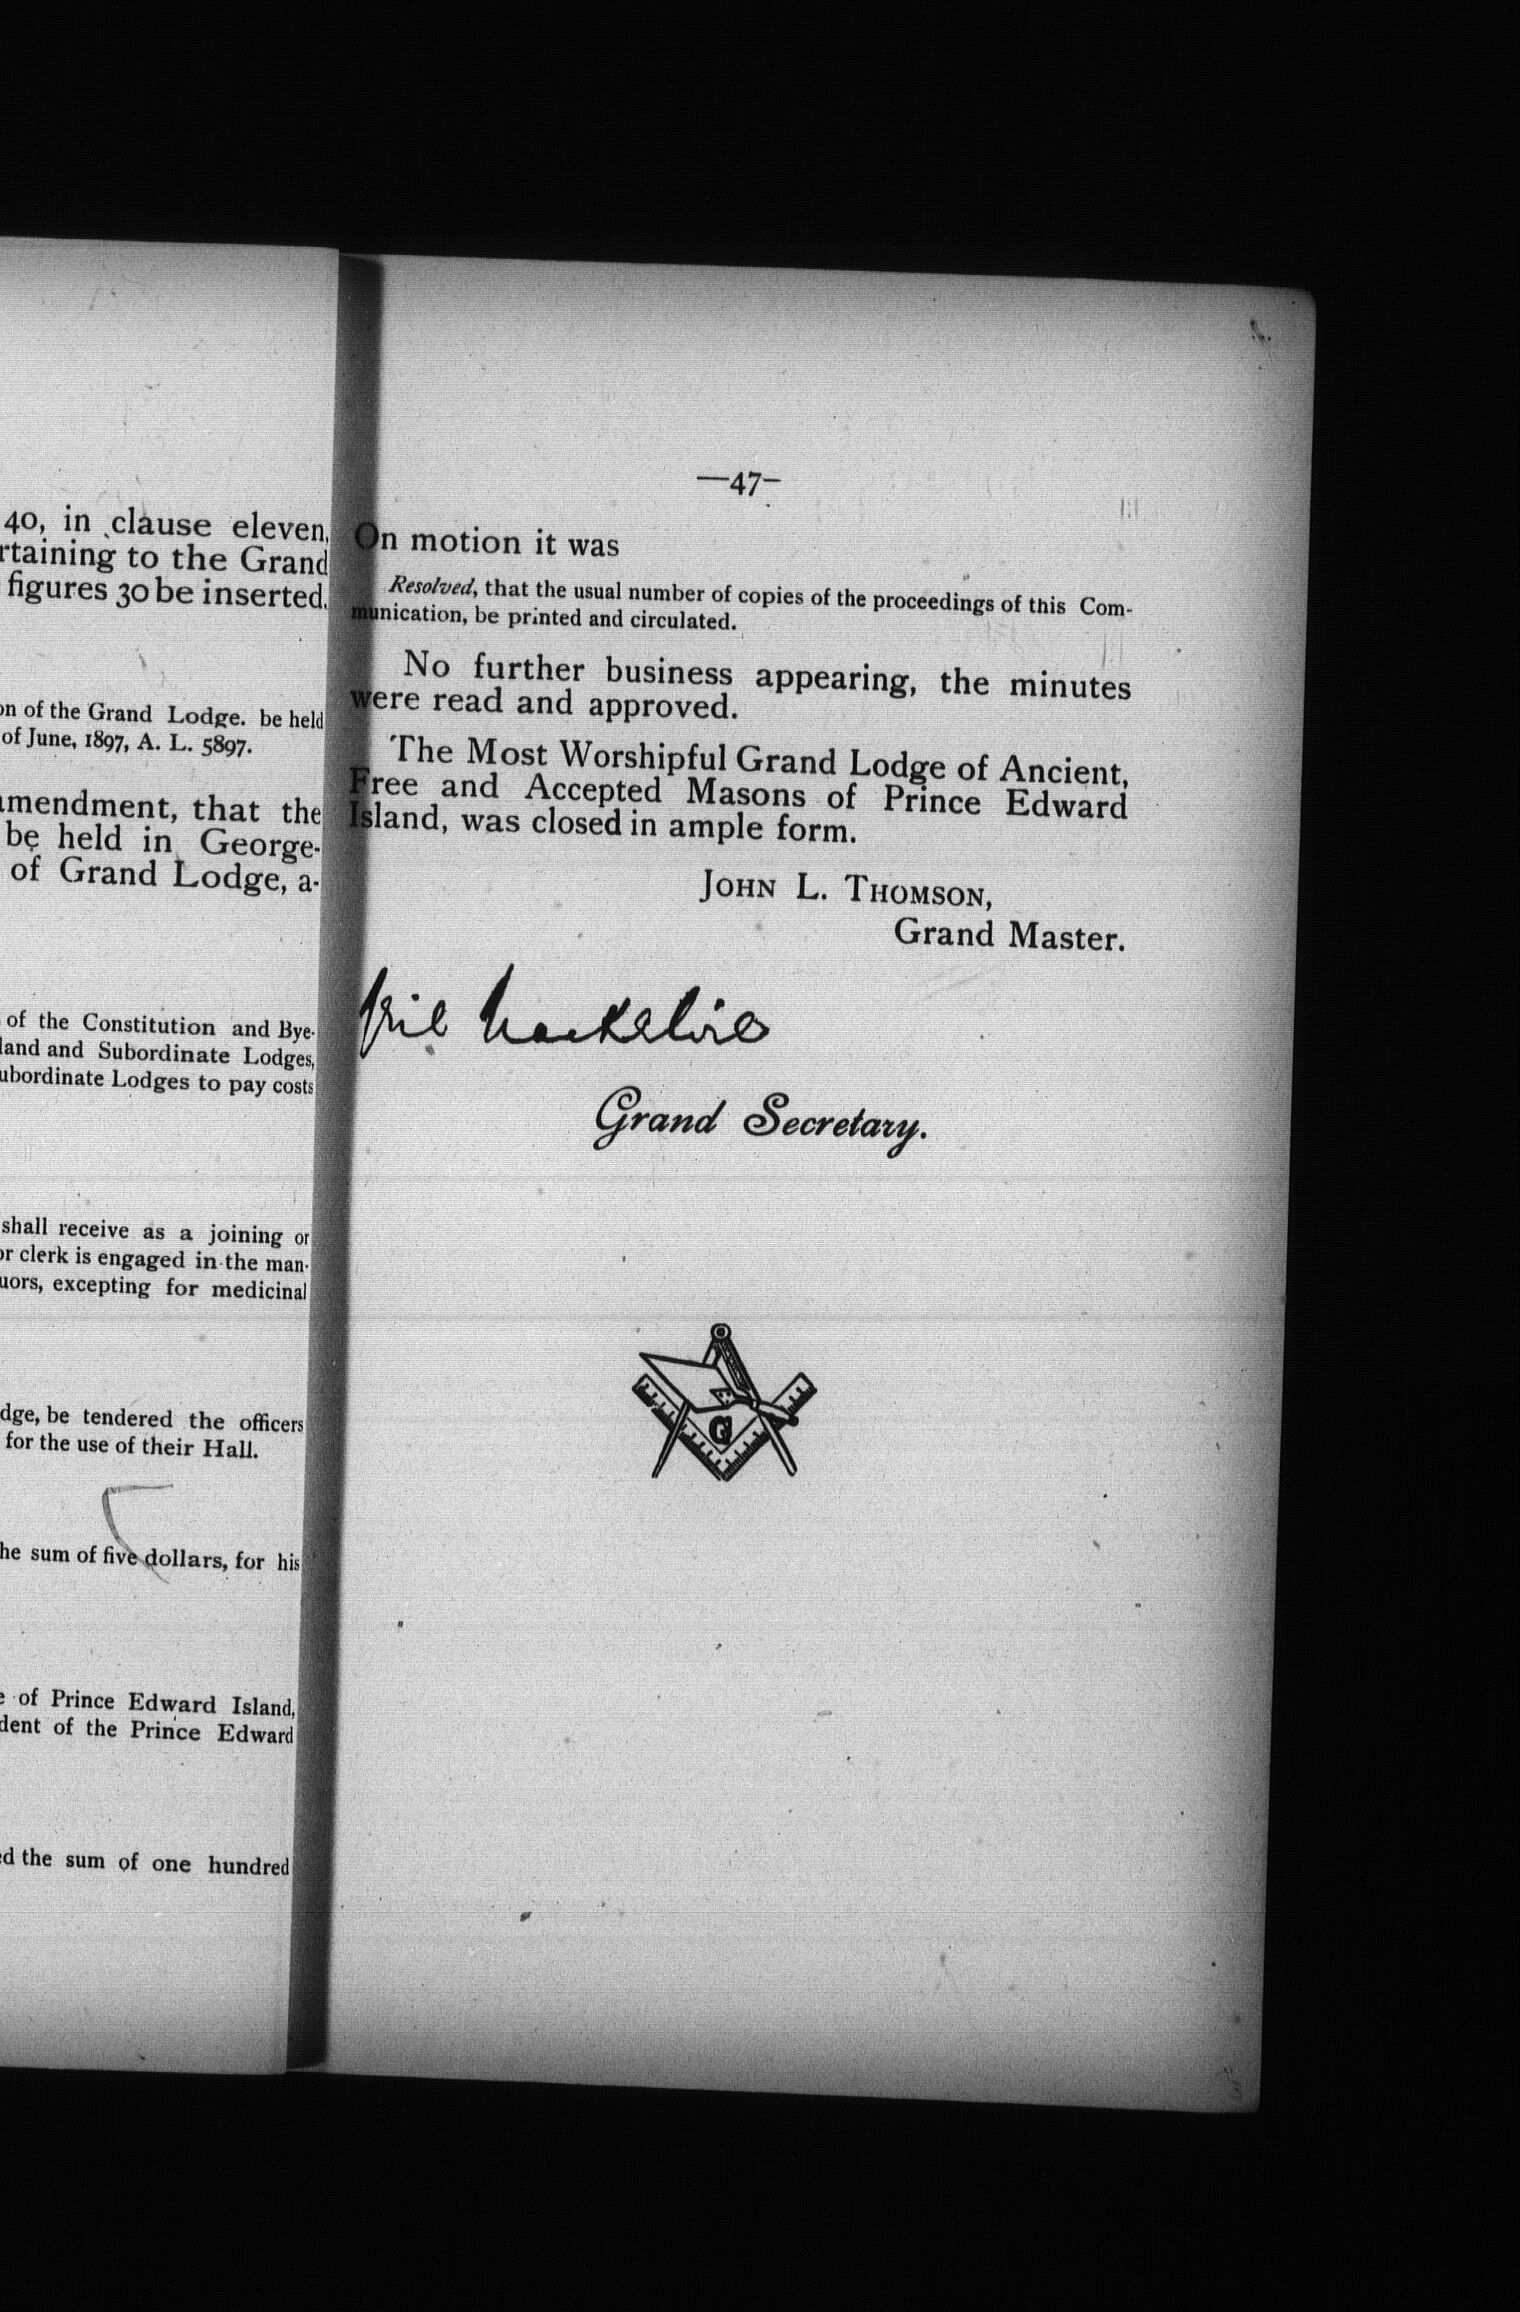 40, in clause eleven,
rtaining to the Grand
figures 30 be inserted.
on of the Grand Lodge. be held
of June, 1897, A. L. 5897.
mendment, that the
be held in George-
of Grand Lodge, a-
of the Constitution and Bye-
land and Subordinate Lodges,
ubordinate Lodges to pay costs
shall receive as a joining or
or clerk is engaged in the man-
uors, excepting for medicinal
dge, be tendered the officers
for the use of their Hall.
he sum of five dollars, for his
e of Prince Edward Island,
dent of the Prince Edward
ed the sum of one hundred
—47—
On motion it was
Resolved, that the usual number of copies of the proceedings of this Com-
munication, be printed and circulated.
No further business appearing, the minutes
were read and approved.
The Most Worshipful Grand Lodge of Ancient,
Free and Accepted Masons of Prince Edward
Island, was closed in ample form.
JOHN L. THOMSON,
Grand Master.
Neil MacKelvie
Grand Secretary.
G